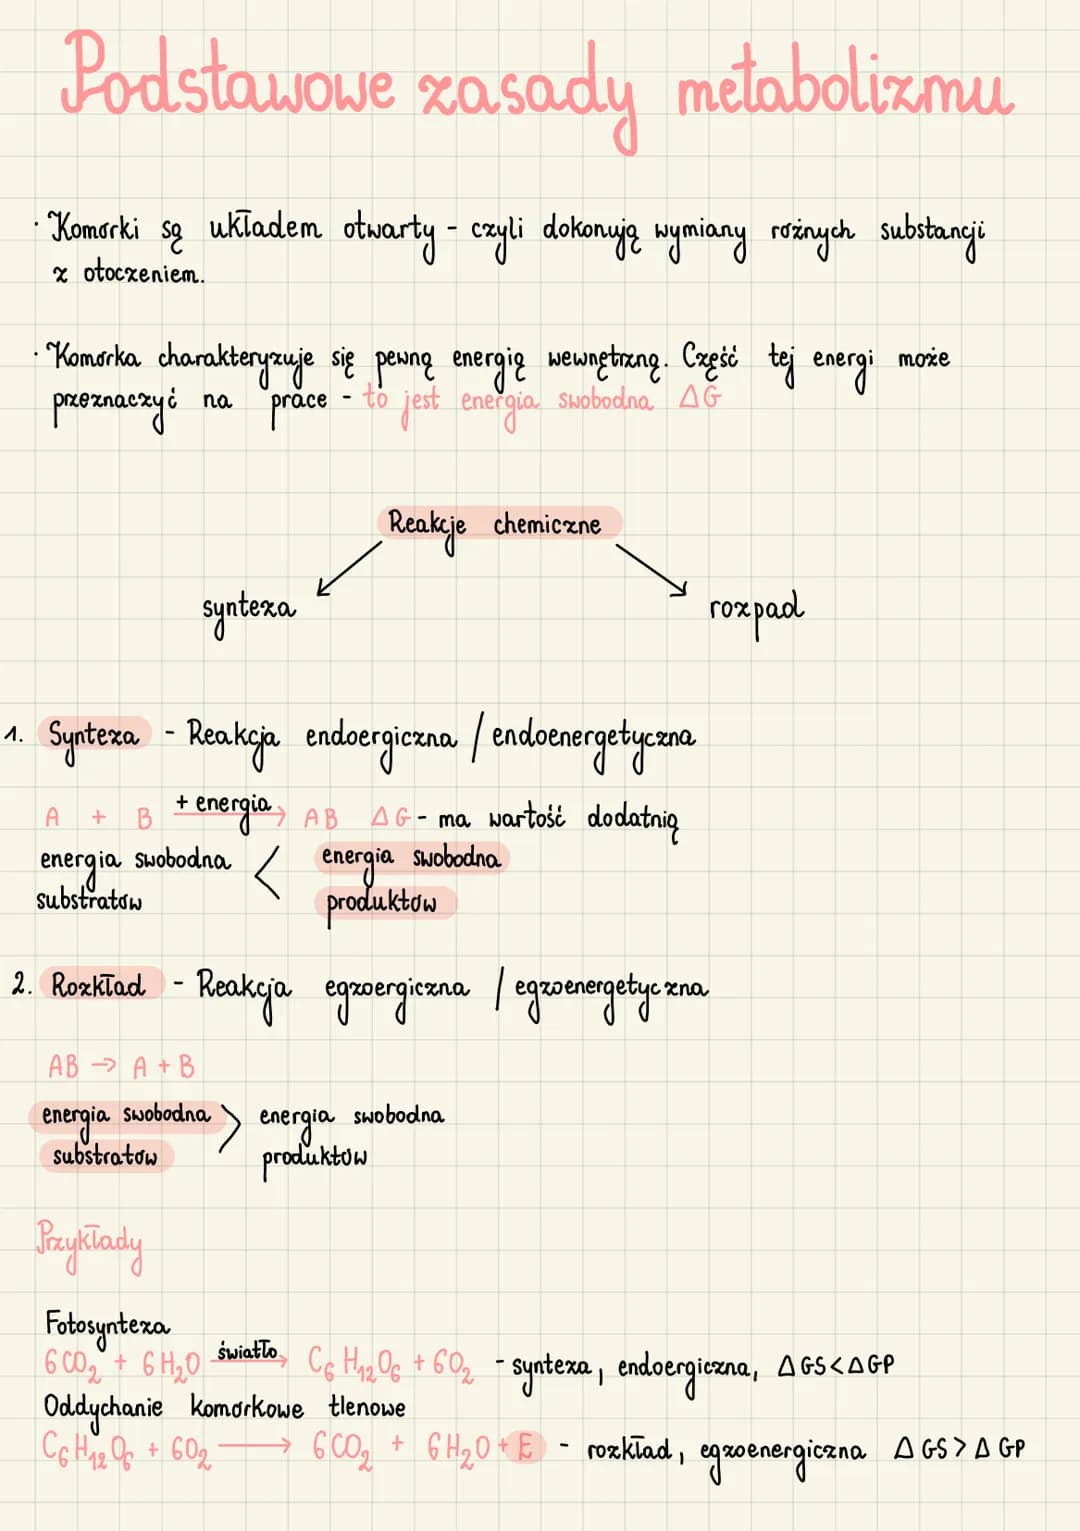 Podstawowe zasady metabolizmu
· Komórki są układem otwarty - czyli dokonują wymiany różnych substancji
z otoczeniem.
· Komórka charakteryzuje się pewną energię wewnętrzną. Część tej energi może
przeznaczyć na prace - to jest energia swobodna ΔG
Reakcje chemiczne
synteza
rozpad
1. Synteza - Reakcja endoergiczna / endoenergetyczna
A + B + energia → AB ΔG - ma wartość dodatnią
energia swobodna < energia swobodna
substratów produktów
2. Rozkład - Reakcja egzoergiczna / egzoenergetyczna
AB → A + B
energia swobodna > energia swobodna
substratów produktów
Przykłady
Fotosynteza
6CO₂ + 6H₂O światło → C₆H₁₂O₆ + 6O₂ - synteza, endoergiczna, ΔGS<ΔGP
Oddychanie komórkowe tlenowe
C₆H₁₂O₆ + 6O₂ → 6CO₂ + 6H₂O + E - rozkład, egzoenergiczna ΔGS>ΔGP